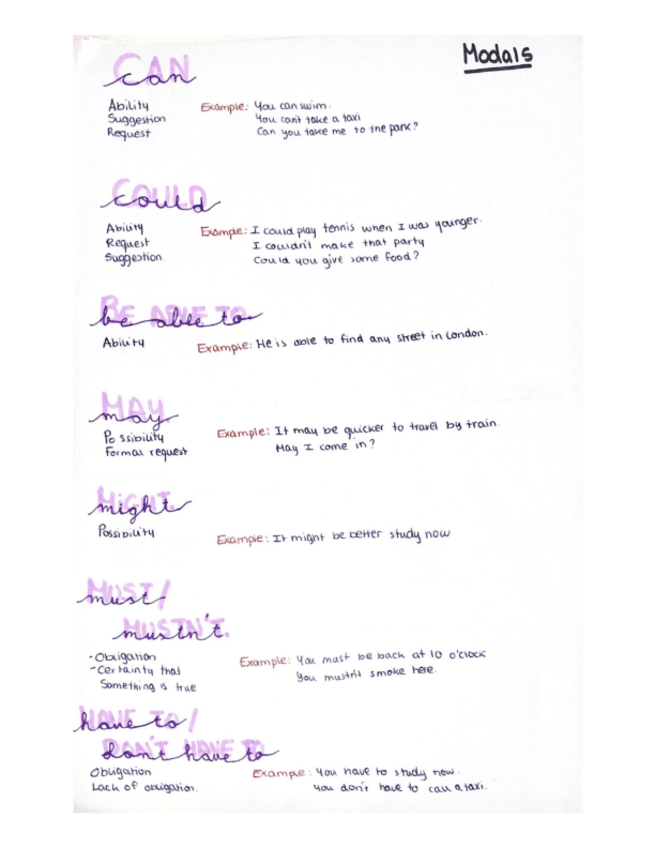 Modals
CAN
can
Ability Example: You can swim.
Suggestion You can't take a taxi
Request Can you take me to the park?
COULD
could
Ability Example: I could play tennis when I was younger.
Request I couldn't make that party
Suggestion. Could you give some food?
BE ABLE TO
be able to
Ability Example: He is able to find any street in London.
MAY
may
Possibility Example: It may be quicker to travel by train.
Formal request May I come in?
MIGHT
might
Possibility Example: It might be better study now
MUST/
must/
MUSTN'T.
mustn't.
- Obligation Example: You must be back at 10 o'clock
- Certainty that You mustn't smoke here.
Something is true
HAVE TO/
have to/
DON'T HAVE TO
don't have to
Obligation Example: You have to study now.
Lack of obligation. You don't have to call a taxi.